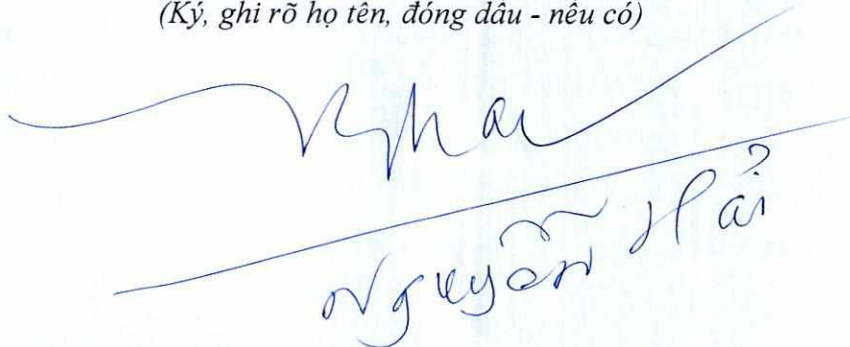 (Ký, ghi rõ họ tên, đóng dấu - nếu có)
Nguyễn Hải